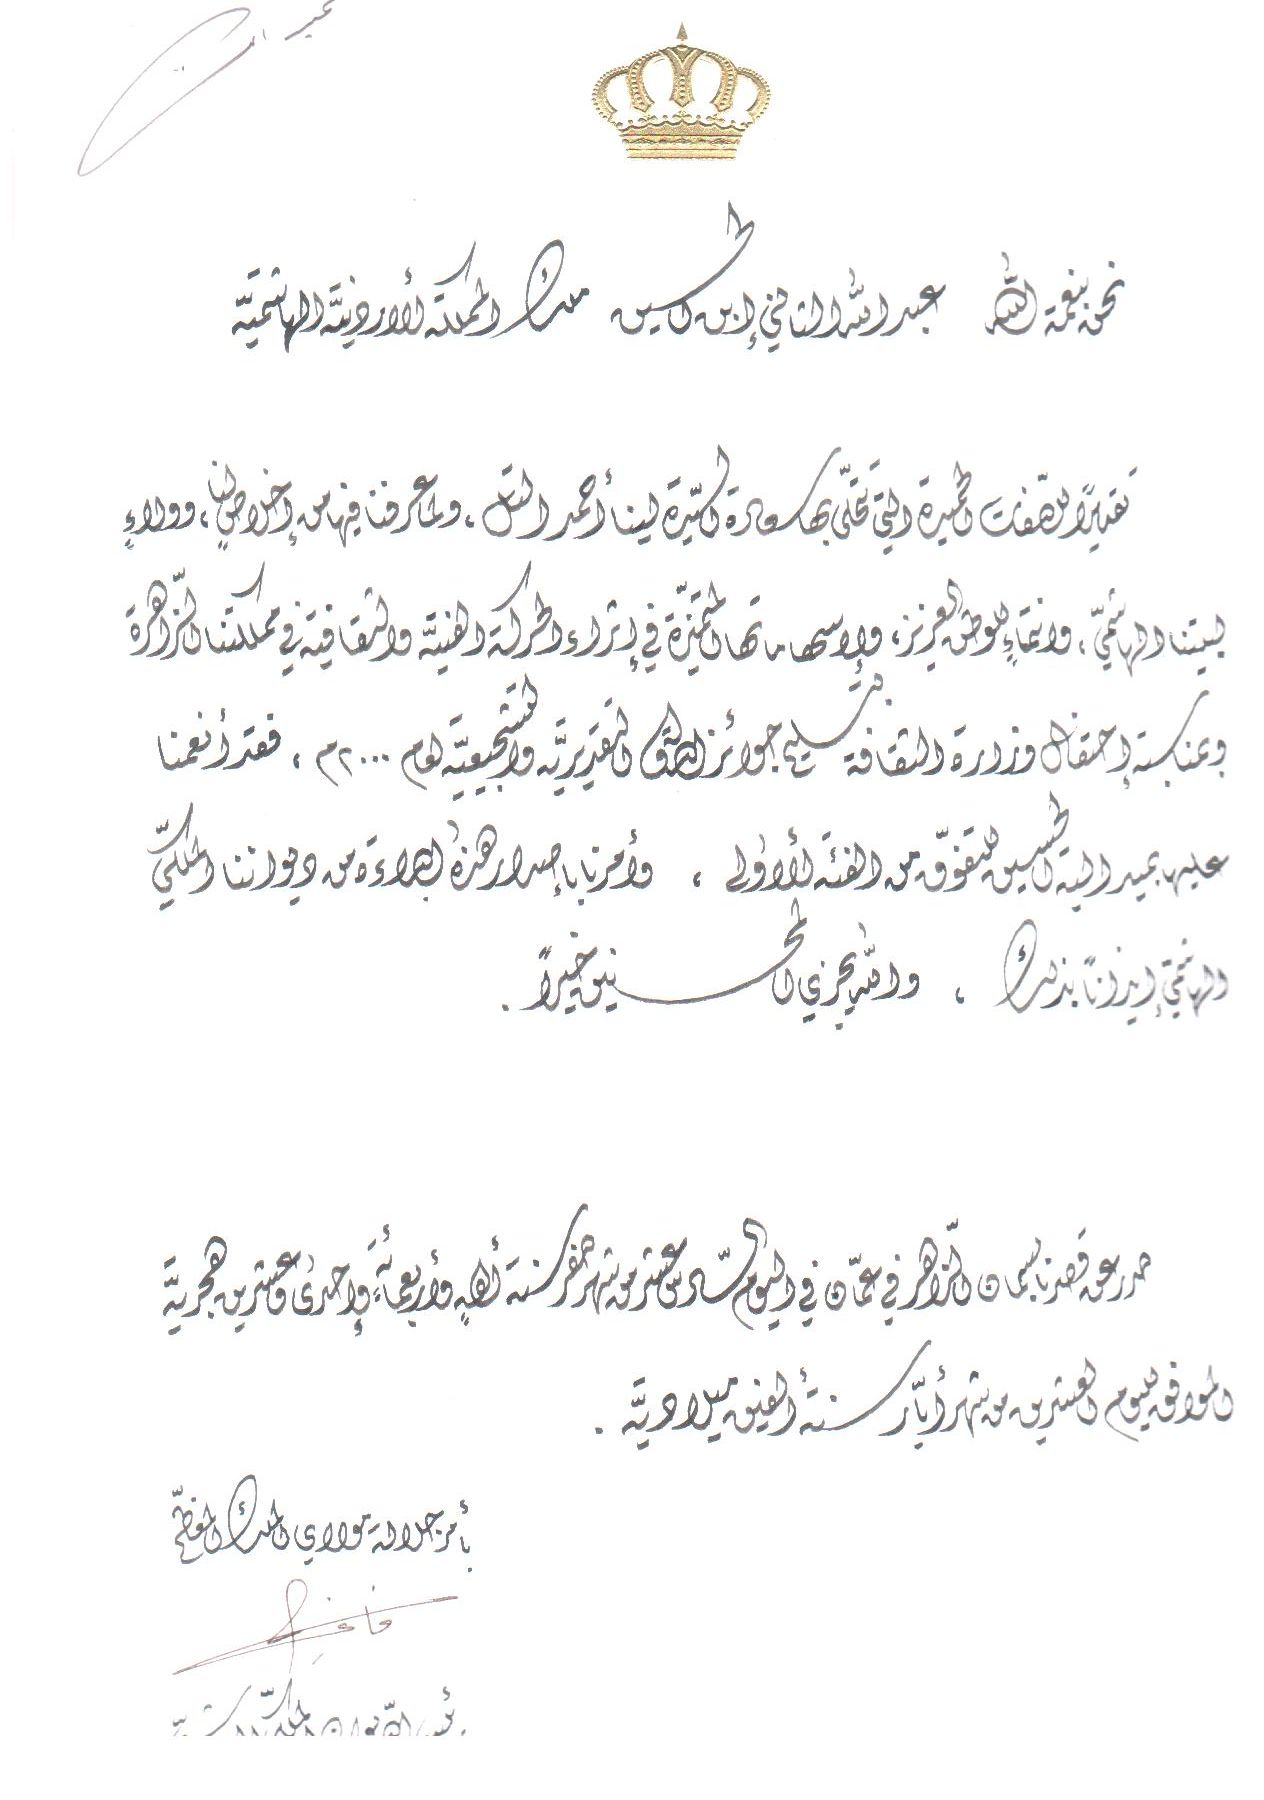 نحن بنعمة الله عبد الله الثاني إبن الحسين ملك المملكة الأردنيّة الهاشميّة
تقديرًا للصّفات الحميدة التي تتحلّى بها سعادة السيّدة لينا أحمد التل، ولما عرفنا فيها من إخلاصٍ لنا، وولاءٍ
لبيتنا الهاشميّ، وانتماءٍ للوطن العزيز، ولإسهاماتها المتميّزة في إثراء الحركة الفنيّة والثقافية في مملكتنا الزّاهرة
وبمناسبة إحتفال وزارة الثقافة بتسليم جوائز الدولة التقديريّة والتشجيعيّة لعام ٢٠٠٠م، فقد أنعمنا
عليها بميدالية الحسين للتفوّق من الفئة الأولى، وأمرنا بإصدار هذه البراءة من ديواننا الملكيّ
الهاشميّ إيذانًا بذلك، والله يجزي المحسنين خيرًا.
صدر عن قصرنا بسمان الزّاهر في عمّان في اليوم السّادس عشر من شهر صفر سنة ألفٍ وأربعمائةٍ وإحدى وعشرين هجريّة
الموافق لليوم العشرين من شهر أيّار سنة ألفين ميلاديّة.
بأمر جلالة مولاي الملك المعظّم